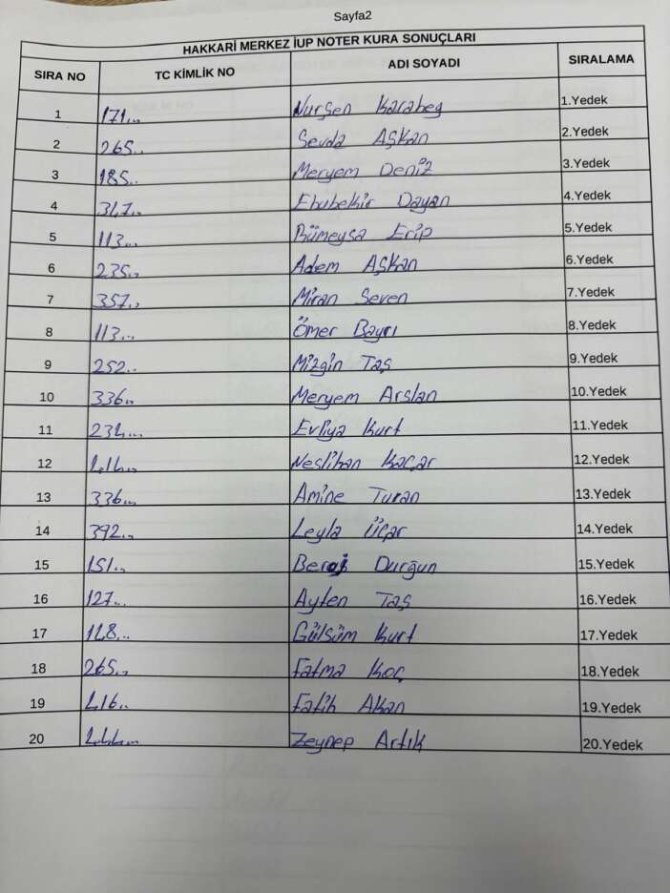 Sayfa2
HAKKARİ MERKEZ İUP NOTER KURA SONUÇLARI
SIRA NO TC KİMLİK NO ADI SOYADI SIRALAMA
1 171... Nurşen Karabeg 1.Yedek
2 265.. Sevda Aşkan 2.Yedek
3 185.. Meryem Deniz 3.Yedek
4 317.. Ebubekir Dayan 4.Yedek
5 113... Rümeysa Erip 5.Yedek
6 235.. Adem Aşkan 6.Yedek
7 357.. Miran Seven 7.Yedek
8 113... Ömer Baycı 8.Yedek
9 252.. Mizgin Taş 9.Yedek
10 336.. Meryem Arslan 10.Yedek
11 231... Evliya Kurt 11.Yedek
12 Neslihan Kaçar 12.Yedek
13 336... Amine Turan 13.Yedek
14 392.. Leyla Üçar 14.Yedek
15 151.. Durğun 15.Yedek
16 127... Ayten Taş 16.Yedek
17 118.. Gülsüm Kurt 17.Yedek
18 265.. Fatma Koç 18.Yedek
19 Fatih Akan 19.Yedek
20 Zeynep Artık 20.Yedek